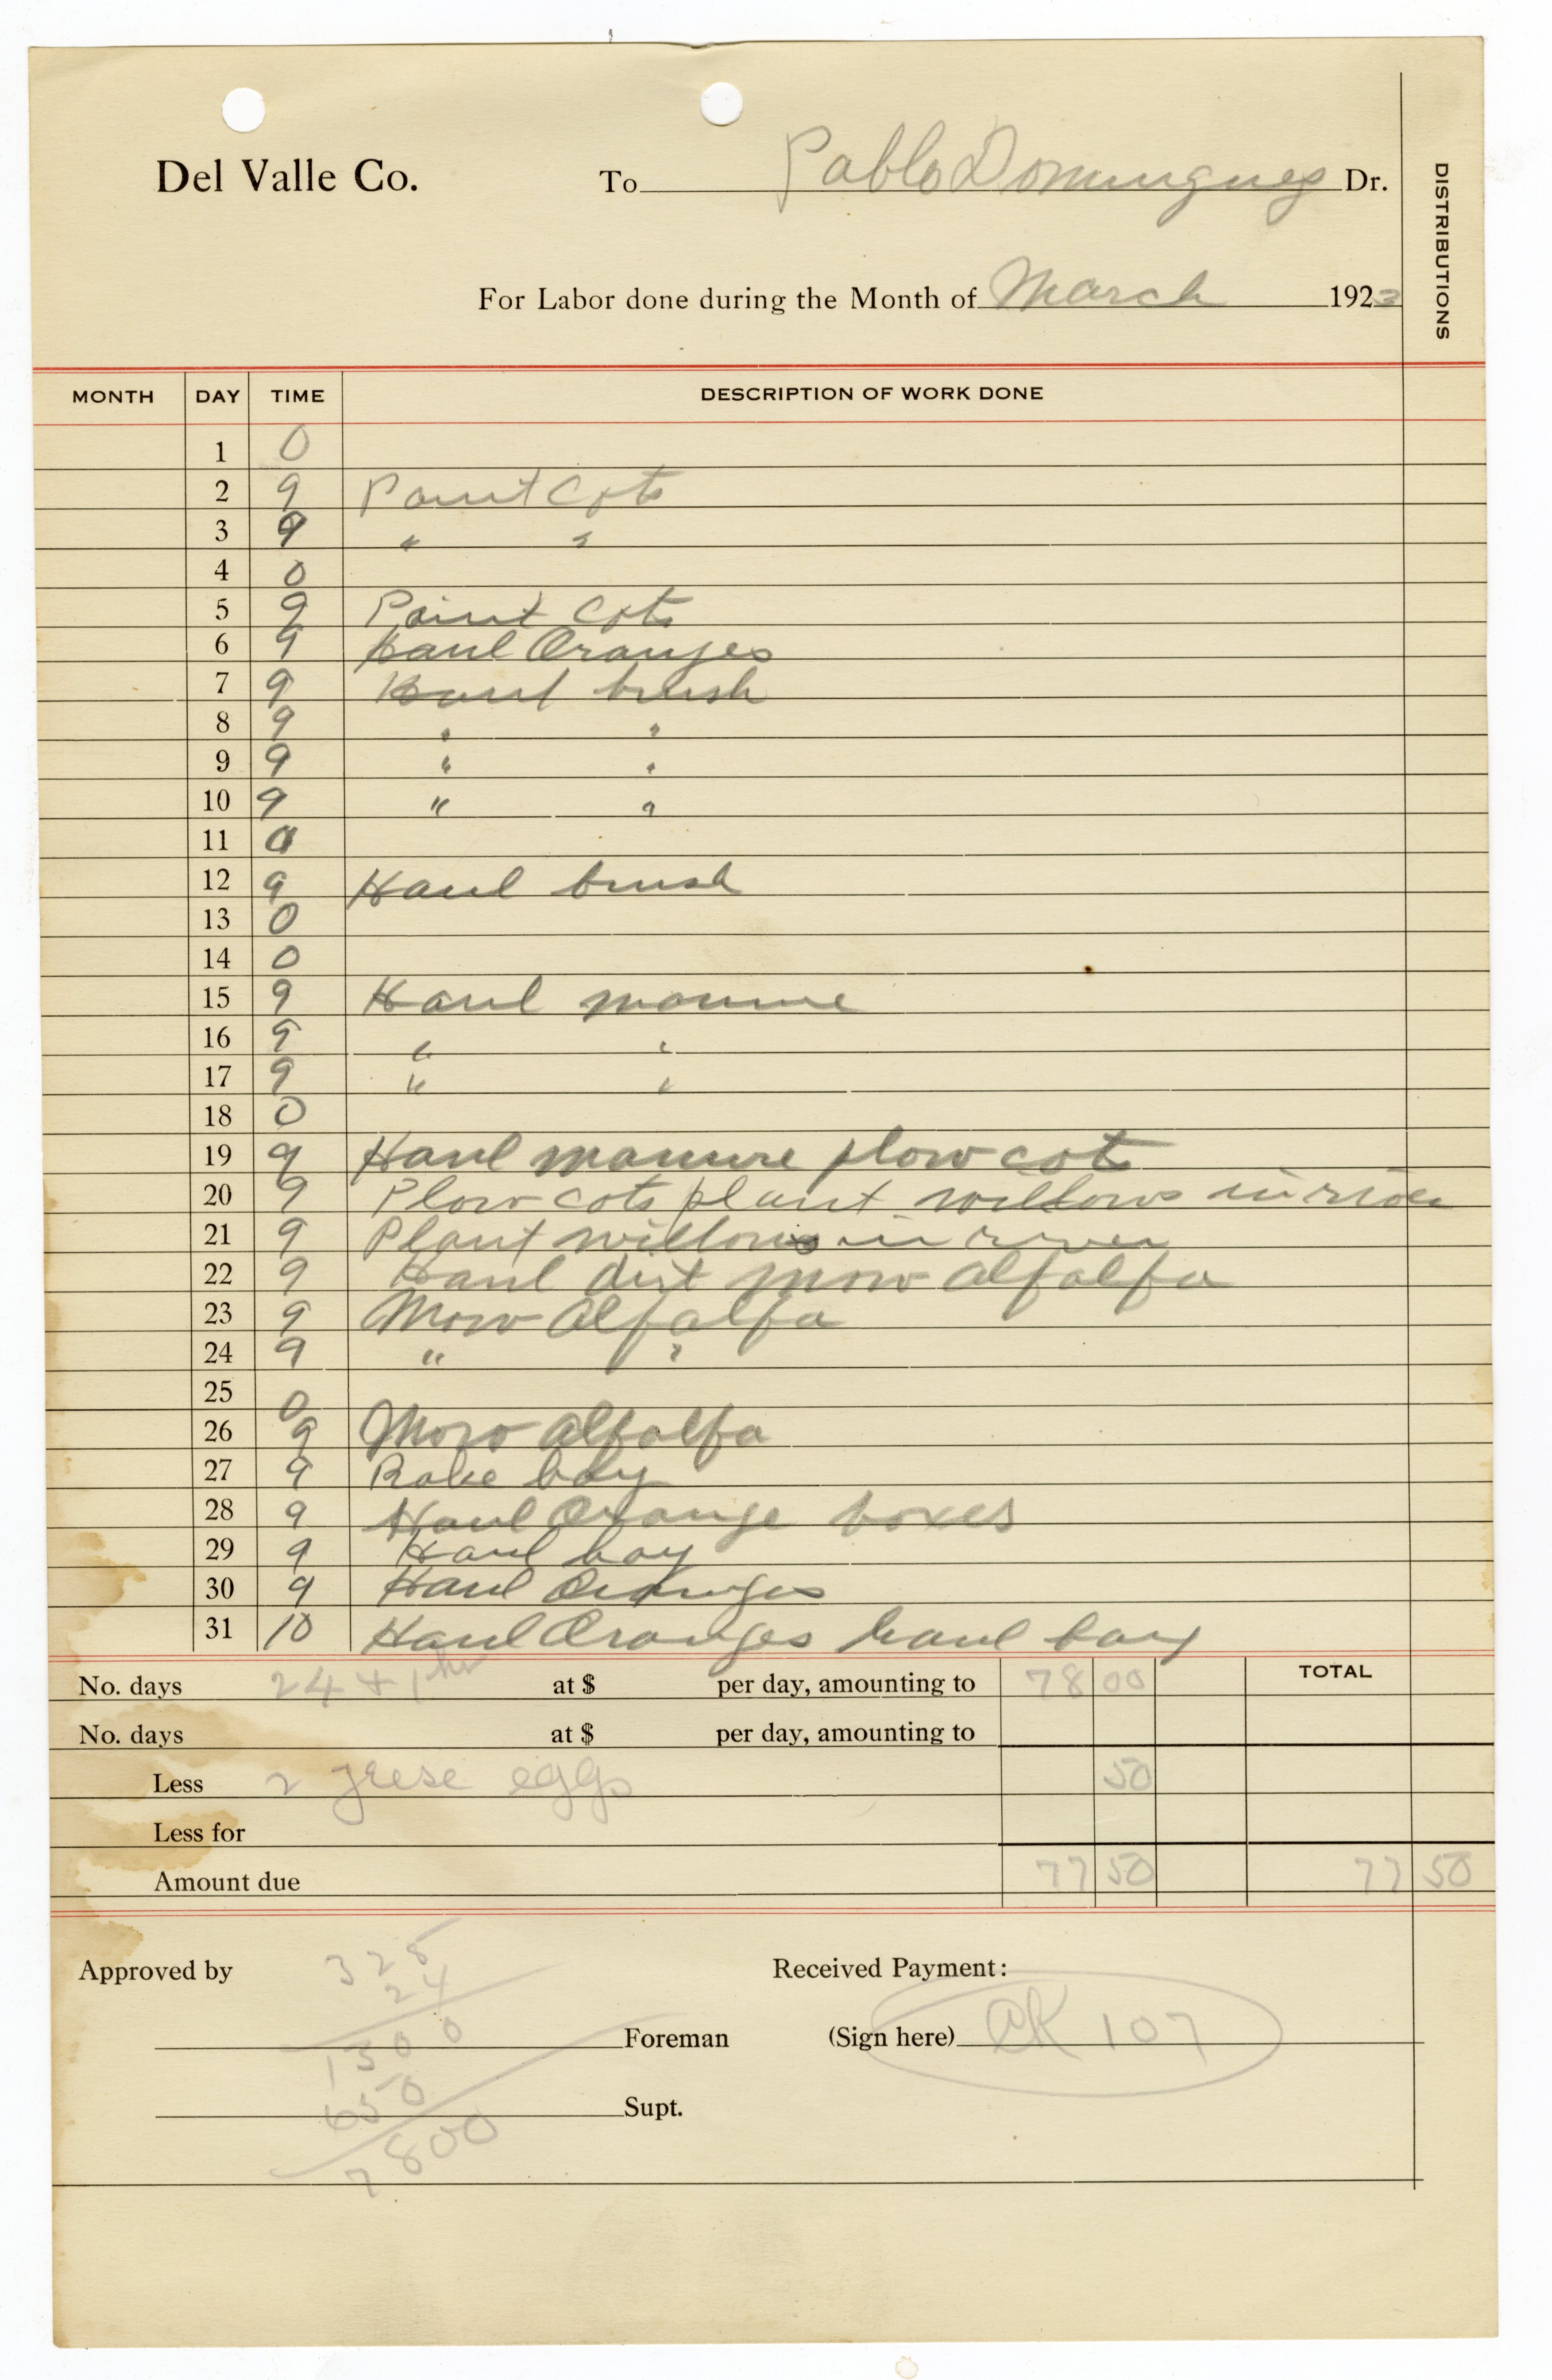 Del Valle Co. To Pablo Dominguez Dr.
DISTRIBUTIONS
For Labor done during the Month of March 1923
MONTH DAY TIME DESCRIPTION OF WORK DONE
1 0
2 9 Paint Cots
3 9 " "
4 0
5 9 Paint Cots
6 9 Haul Oranges
7 9 Haul brush
8 9 " "
9 9 " "
10 9 " "
11 0
12 9 Haul brush
13 0
14 0
15 9 Haul manure
16 9 " "
17 9 " "
18 0
19 9 Haul manure plow cots
20 9 Plow cots plant willows in river
21 9 Plant willows in river
22 9 Haul dirt mow alfalfa
23 9 Mow Alfalfa
24 9 " "
25 0
26 9 Mow Alfalfa
27 9 Rake hay
28 9 Haul Orange boxes
29 9 Haul hay
30 9 Haul Oranges
31 10 Haul Oranges haul hay
No. days 24 + 1 hr at $ per day, amounting to 78 00 TOTAL
No. days at $ per day, amounting to
Less 2 geese eggs 50
Less for
Amount due 77 50 77 50
Approved by Received Payment:
325
24
1300
650
7800
Foreman (Sign here) CK 107
Supt.